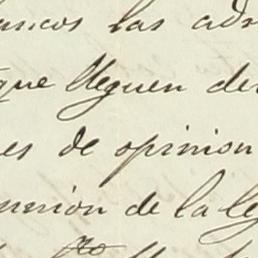 ancos las adr
que lleguen de
es de opinion
nsion de la le